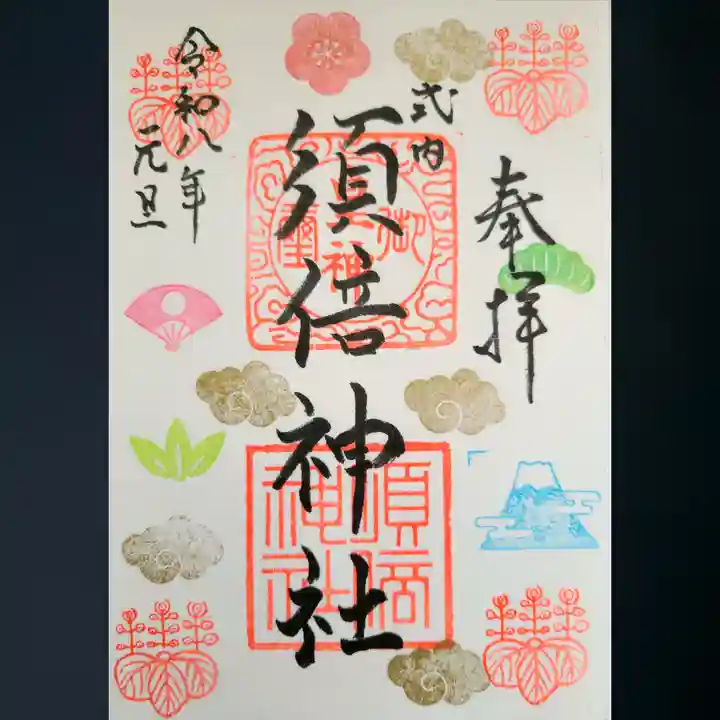 奉拝
式内
須倍神社
令和八年
元旦
須倍
神社